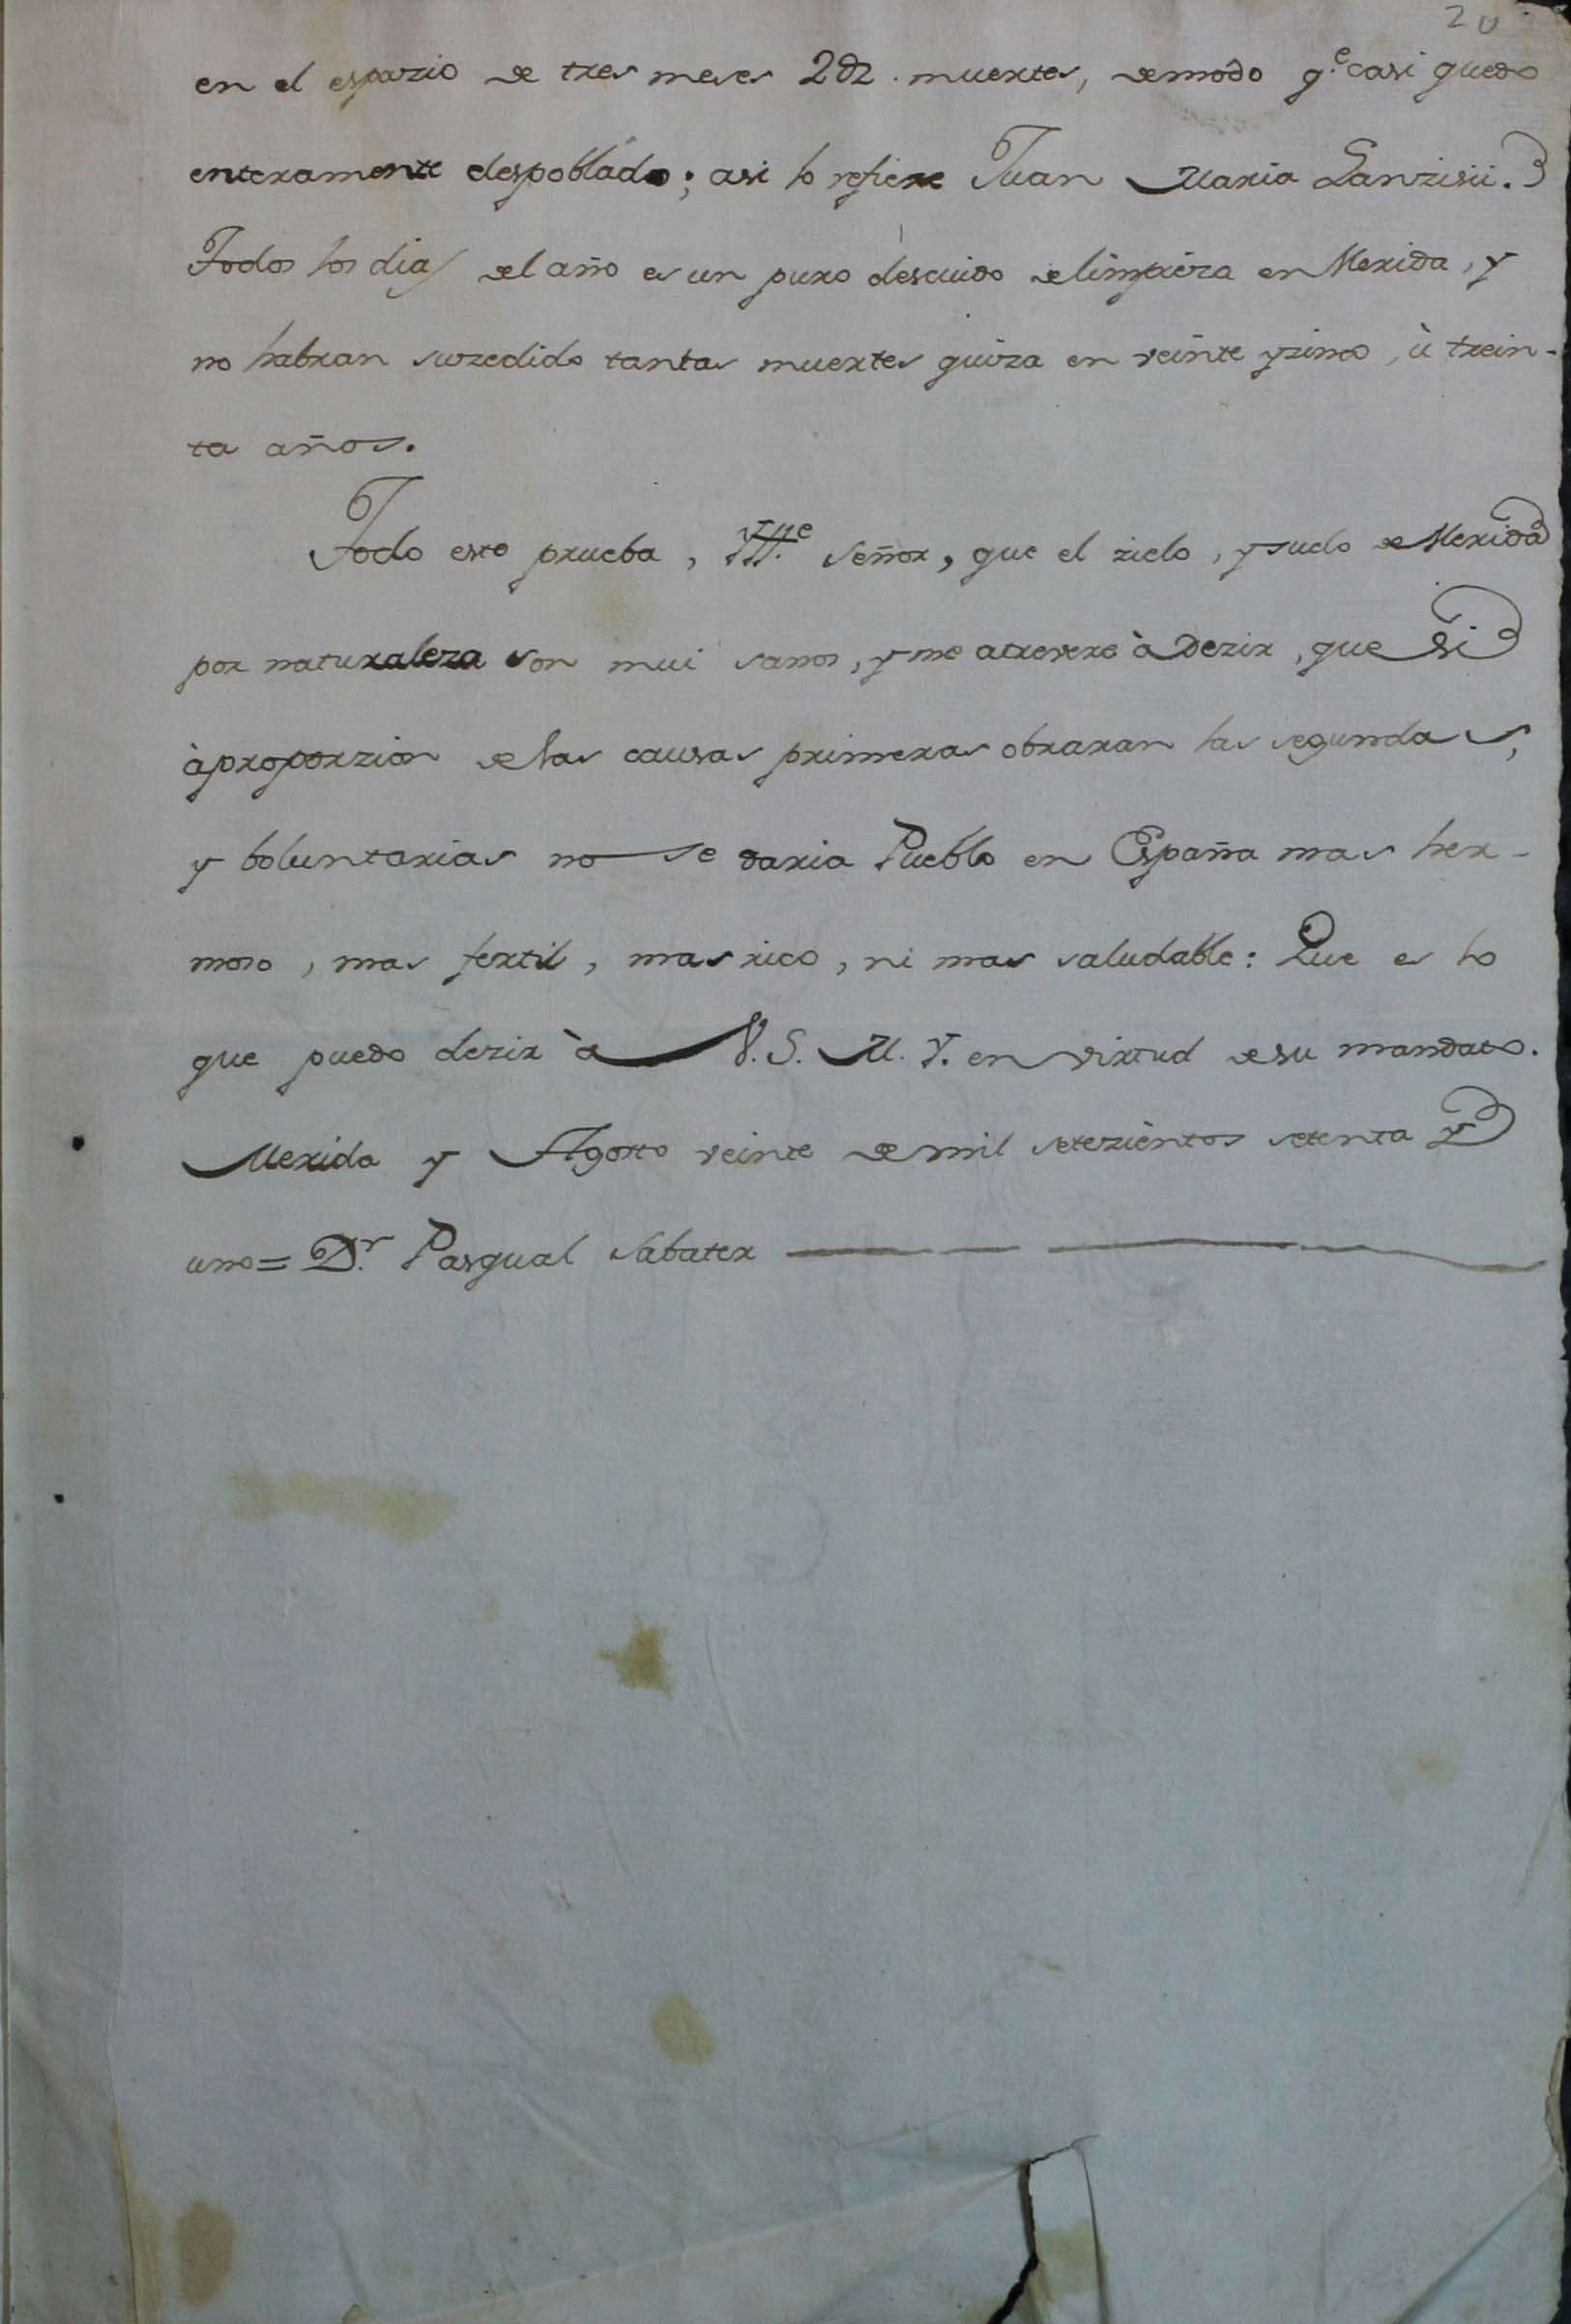 20
en el espazio de tres meses 2d2. muertes, de modo q.e casi quedo
enteramente despoblado; asi lo refiere Juan Maria Lanzisii.
Todos los dias del año es un puro descuido de limpieza en Merida, y
no habran suzedido tantas muertes quiza en veinte y zinco, ù trein-
ta años.
Todo esto prueba, Yll.e Señor, que el zielo, y suelo de Merida
por naturaleza son mui sanos, y me atrevere à Dezir, que si
à proporzion de las causas primeras obraran las segundas,
y boluntarias no se daria Pueblo en España mas her-
moso, mas fertil, mas rico, ni mas saludable: Que es lo
que puedo dezir à V.S. M. Y. en virtud de su mandato.
Merida y Agosto veinte de mil setezientos setenta y
uno = D.r Pasqual Sabater